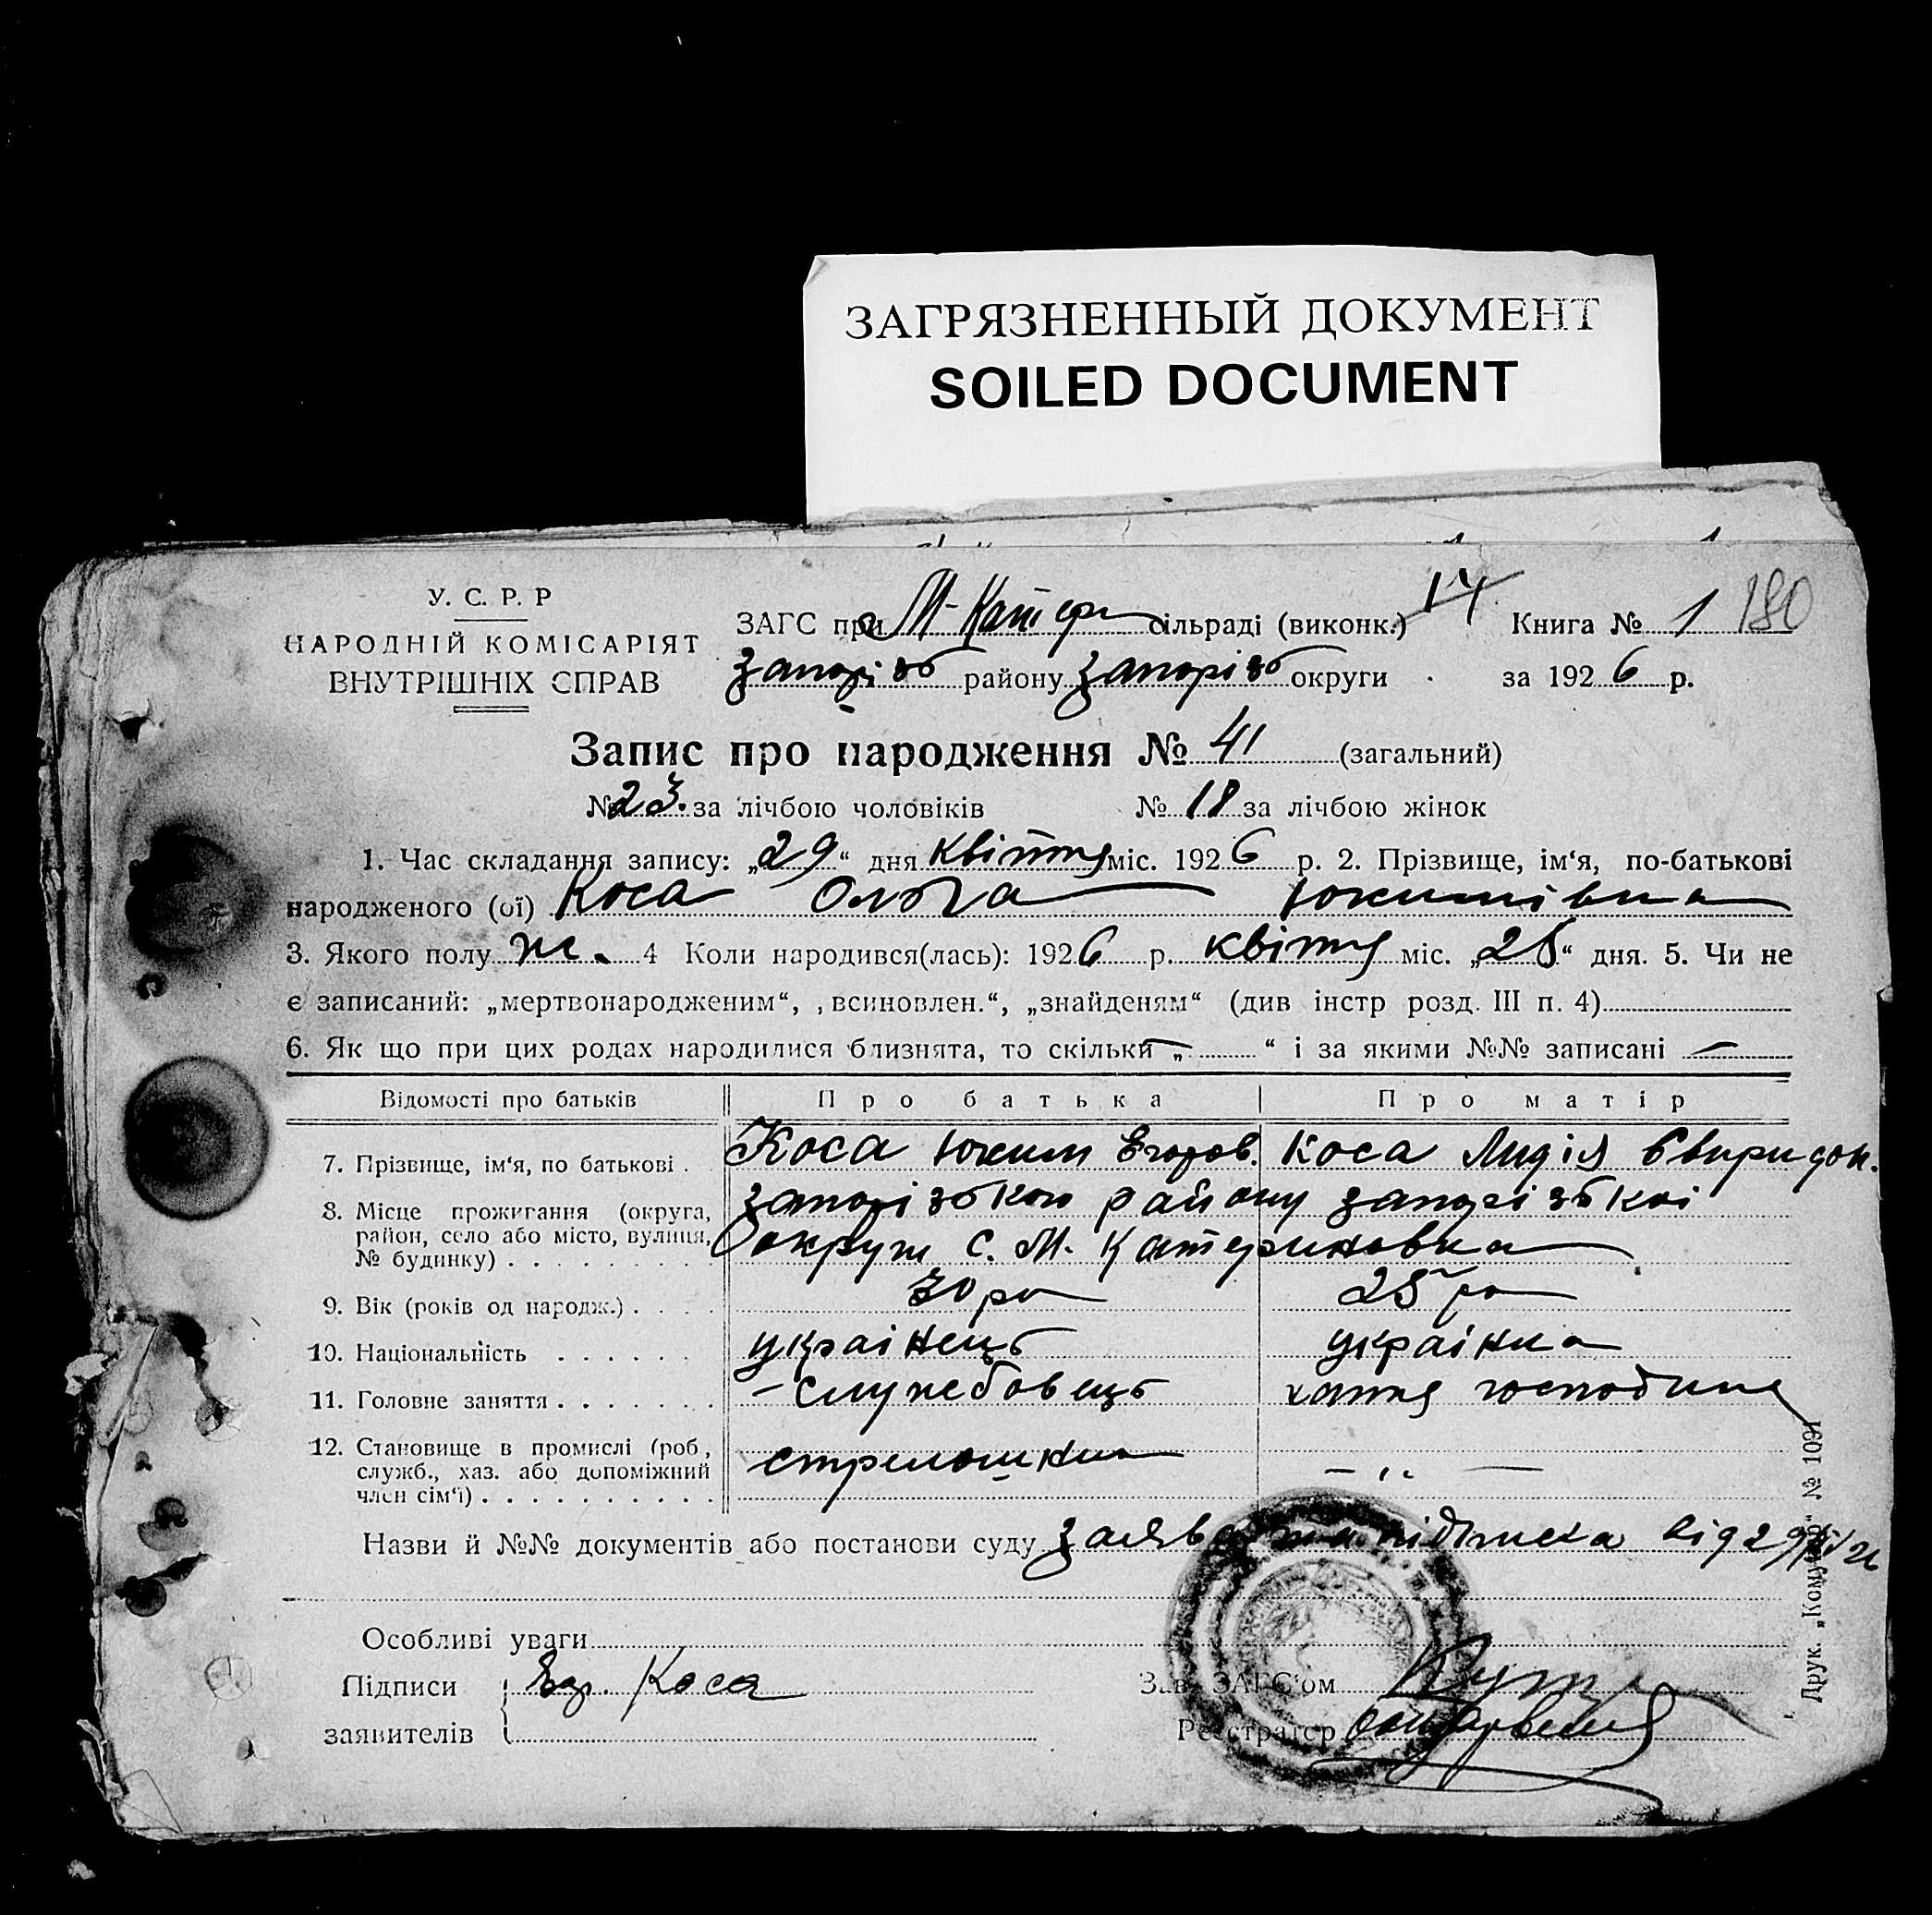 ЗАГРЯЗНЕННЫЙ ДОКУМЕНТ
SOILED DOCUMENT
У. С. Р. Р
НАРОДНІЙ КОМІСАРІЯТ
ВНУТРІШНІХ СПРАВ
ЗАГС при М-Катер сільраді (виконк.) 14 Книга № 1 180
Запорізь району Запорізь округи за 1926 р.
Запис про народження № 41 (загальний)
№ 23. за лічбою чоловіків № 18 за лічбою жінок
1. Час складання запису: „29“ дня квітня міс. 1926 р. 2. Прізвище, ім‘я, по-батькові
народженого (ої) Коса Ольга Юхимівна
3. Якого полу ж. 4 Коли народився(лась): 1926 р. квітня міс. „28“ дня. 5. Чи не
є записаний: „мертвонародженим“, „всиновлен.“, „знайденям“ (див інстр розд. III п. 4)
6. Як що при цих родах народилися близнята, то скільки „—“ і за якими №№ записані —
Відомості про батьків Про батька Про матір
7. Прізвище, ім‘я, по батькові . Коса Юхим Єгоров. Коса Лидія Свиридон.
8. Місце проживання (округа, район, село або місто, вулиця, № будинку) . . . . . . . . . Запорізького району Запорізької
округи С. М. Катериновка
9. Вік (років од народж.) . . . . 30 ро 25 ро
10. Національність . . . . . . українець українка
11. Головне заняття . . . . . . . – службовець хатня господиня
12. Становище в промислі (роб, служб., хаз. або допоміжний член сім‘ї) . . . . . . . . . . – " –
Назви й №№ документів або постанови суду заява та підписка від 29/IV 26
Особливі уваги
Підписи Коса Зав. ЗАГС‘ом
заявителів Реєстратор
Друк. „Комунар“ № 1091